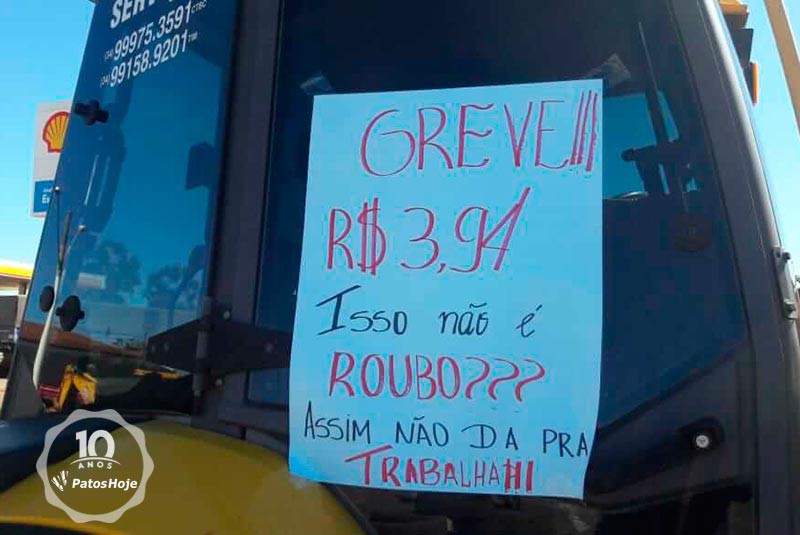 SERV
(34) 99975.3591 CTBC
(34) 99158.9201 TIM
GREVE!!!
R$ 3,94
Isso não é
ROUBO???
ASSIM NÃO DA PRA
TRABALHA!!!
10
ANOS
PatosHoje